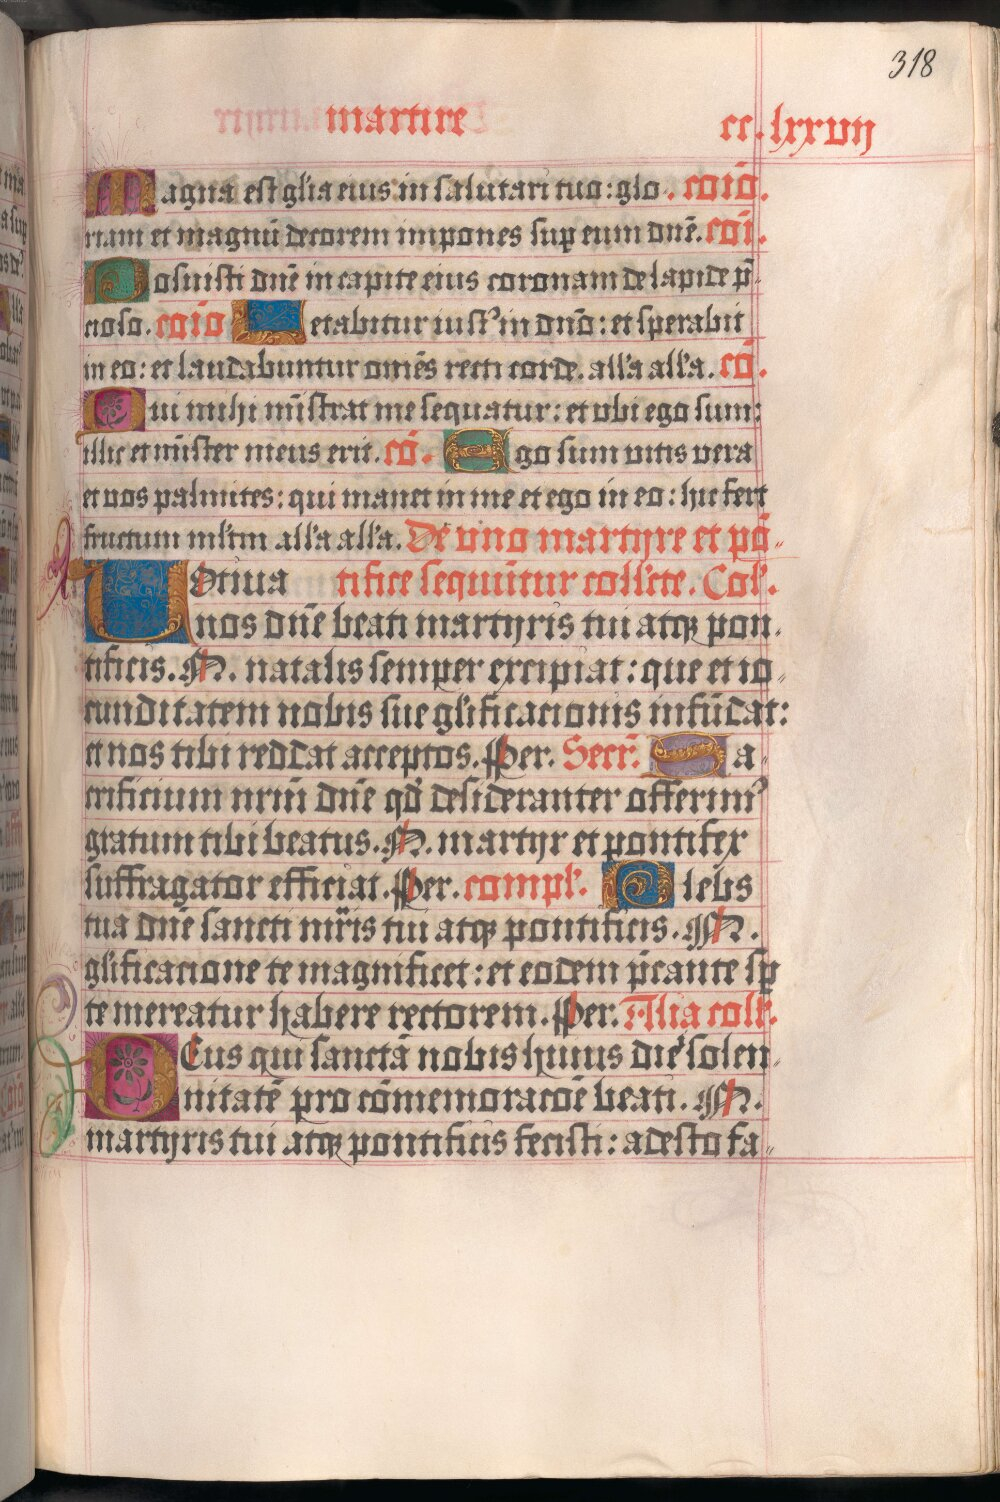 318
martire cc.lxxvij
Magna est glīa eius in salutari tuo: glo. cōīō.
riam et magnū decorem impones sup eum dnē. cōī.
Posuisti dnē in capite eius coronam de lapide p̄-
cioso. cōīō Letabitur iustꝰ in dnō: et sperabit
in eo: et laudabuntur omēs recti corde. all'a all'a. cō.
Qui mihi mīstrat me sequatur: et vbi ego sum:
illic et mīster meus erit. cō. Ego sum vitis vera
et vos palmites: qui manet in me et ego in eo: hic fert
fructum mltm all'a all'a. De vno martyre et pō-
Votiua tifice sequūtur coll'cte. Col'.
nos dnē beati martyris tui atqꝫ pon-
tificis. N. natalis semper excipiat: que et io-
cunditatem nobis sue glīficacionis infūdat:
et nos tibi reddat acceptos. Per. Secr̄. Sa-
crificium nrm̄ dnē qd̄ desideranter offerimꝰ
gratum tibi beatus. N. martyr et pontifex
suffragator efficiat. Per. compl'. Plebs
tua dnē sancti mr̄is tui atqꝫ pontificis. N.
glīficacione te magnificet: et eodem p̄cante sp̄
te mereatur habere rectorem. Per. Alia coll'.
Deus qui sanctā nobis huius diei solen-
nitatē pro cōmemoracōe beati. N.
martyris tui atqꝫ pontificis fecisti: adesto fa-